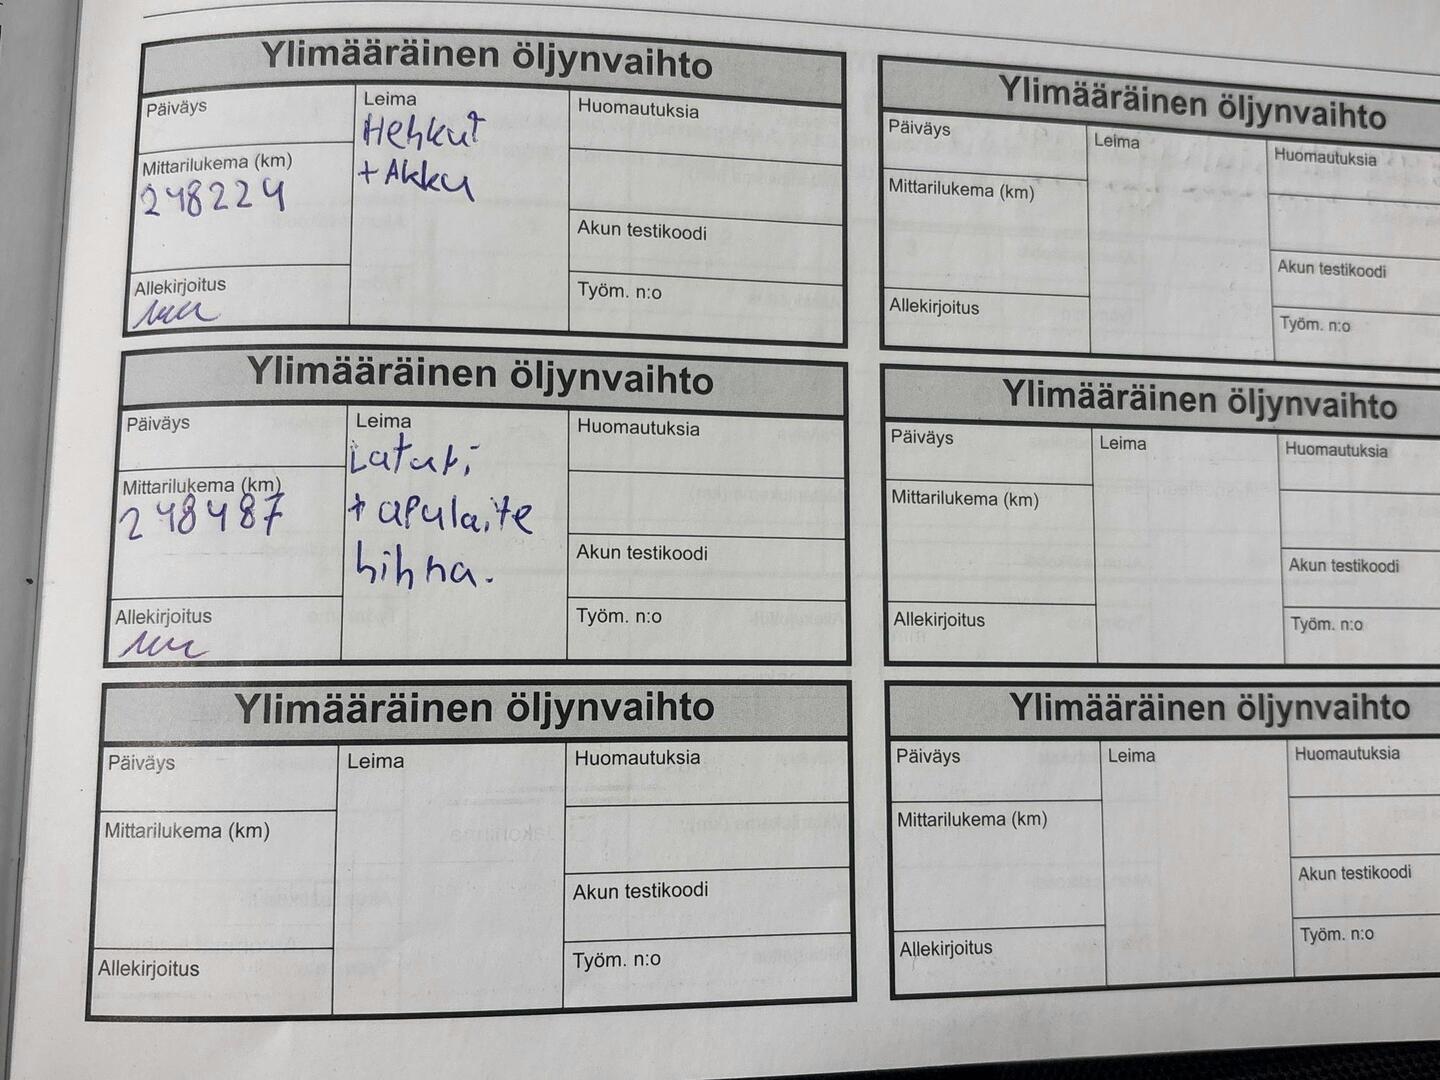 Ylimääräinen öljynvaihto
Päiväys
Mittarilukema (km)
248224
Allekirjoitus
Leima
Hehkut
+ Akku
Huomautuksia
Akun testikoodi
Työm. n:o
Ylimääräinen öljynvaihto
Päiväys
Mittarilukema (km)
Allekirjoitus
Leima
Huomautuksia
Akun testikoodi
Työm. n:o
Ylimääräinen öljynvaihto
Päiväys
Mittarilukema (km)
248487
Allekirjoitus
Leima
Laturi
+ apulaite
hihna.
Huomautuksia
Akun testikoodi
Työm. n:o
Ylimääräinen öljynvaihto
Päiväys
Mittarilukema (km)
Allekirjoitus
Leima
Huomautuksia
Akun testikoodi
Työm. n:o
Ylimääräinen öljynvaihto
Päiväys
Mittarilukema (km)
Allekirjoitus
Leima
Huomautuksia
Akun testikoodi
Työm. n:o
Ylimääräinen öljynvaihto
Päiväys
Mittarilukema (km)
Allekirjoitus
Leima
Huomautuksia
Akun testikoodi
Työm. n:o